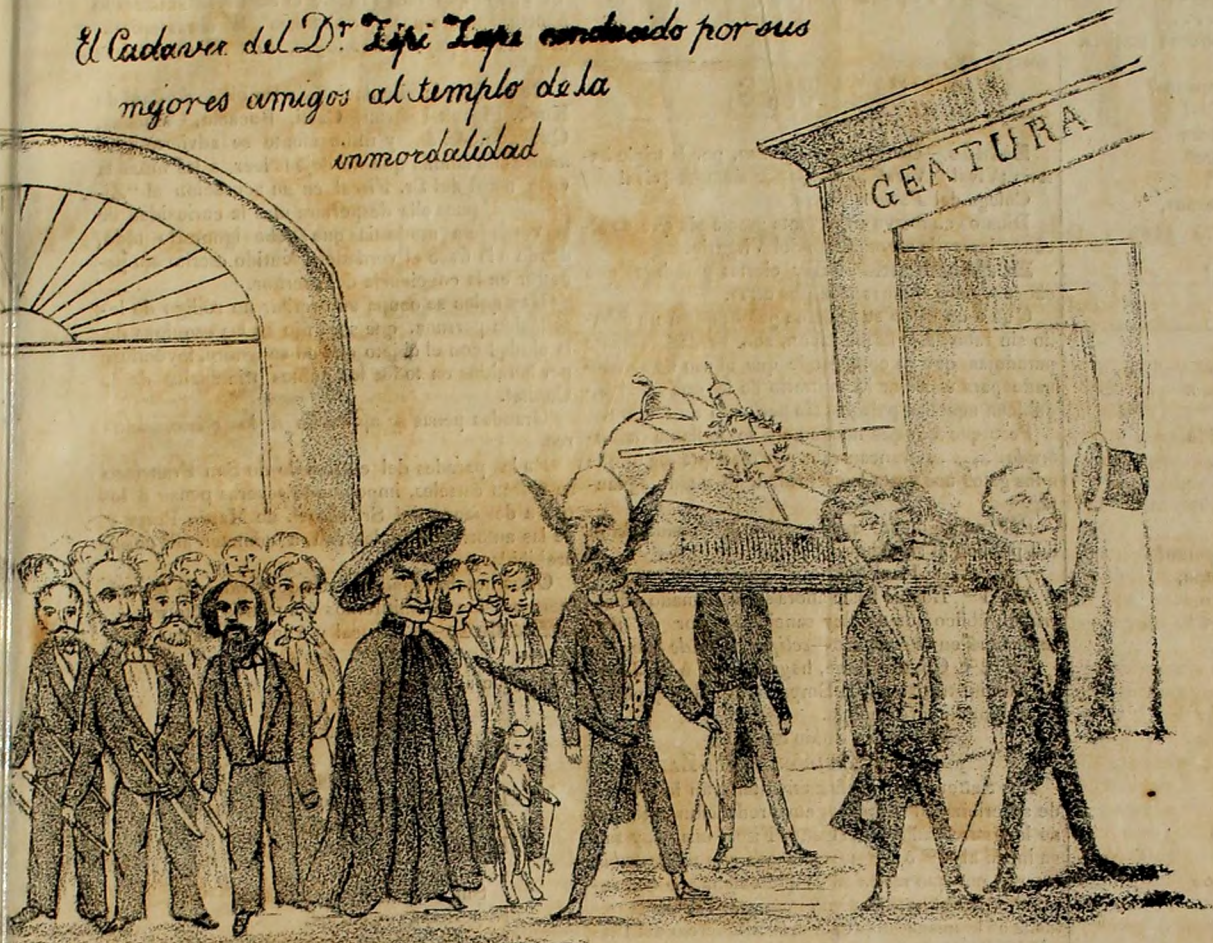 El Cadaver del Dr. Zipi Zape conducido por sus
mejores amigos al templo de la
inmordalidad
GEATURA